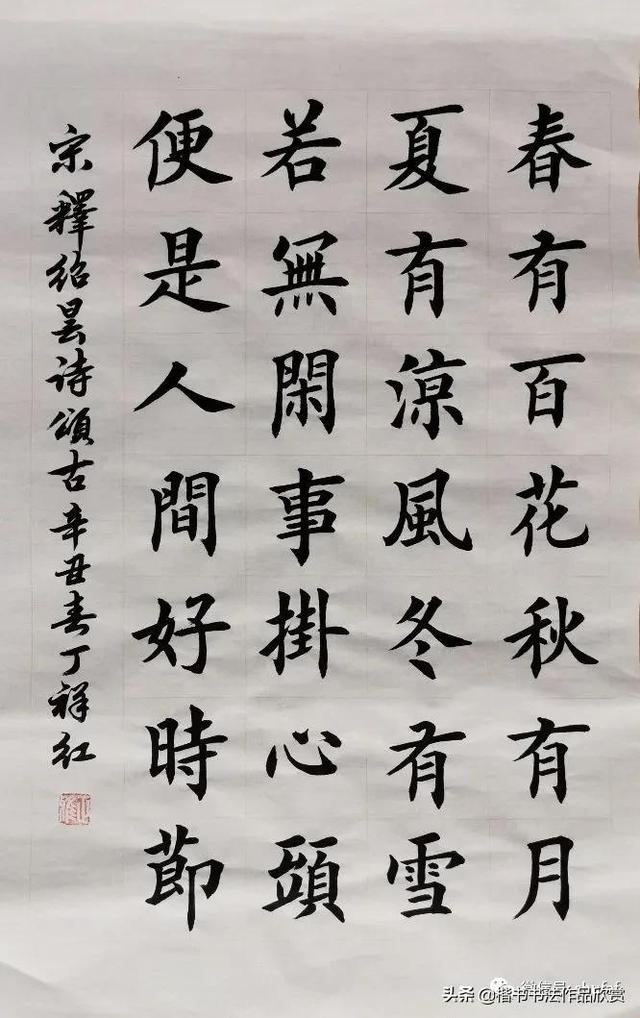 春有百花秋有月
夏有涼風冬有雪
若無閑事掛心頭
便是人間好時節
宋釋紹曇詩頌古辛丑春丁祥红
头条 @楷书书法作品欣赏